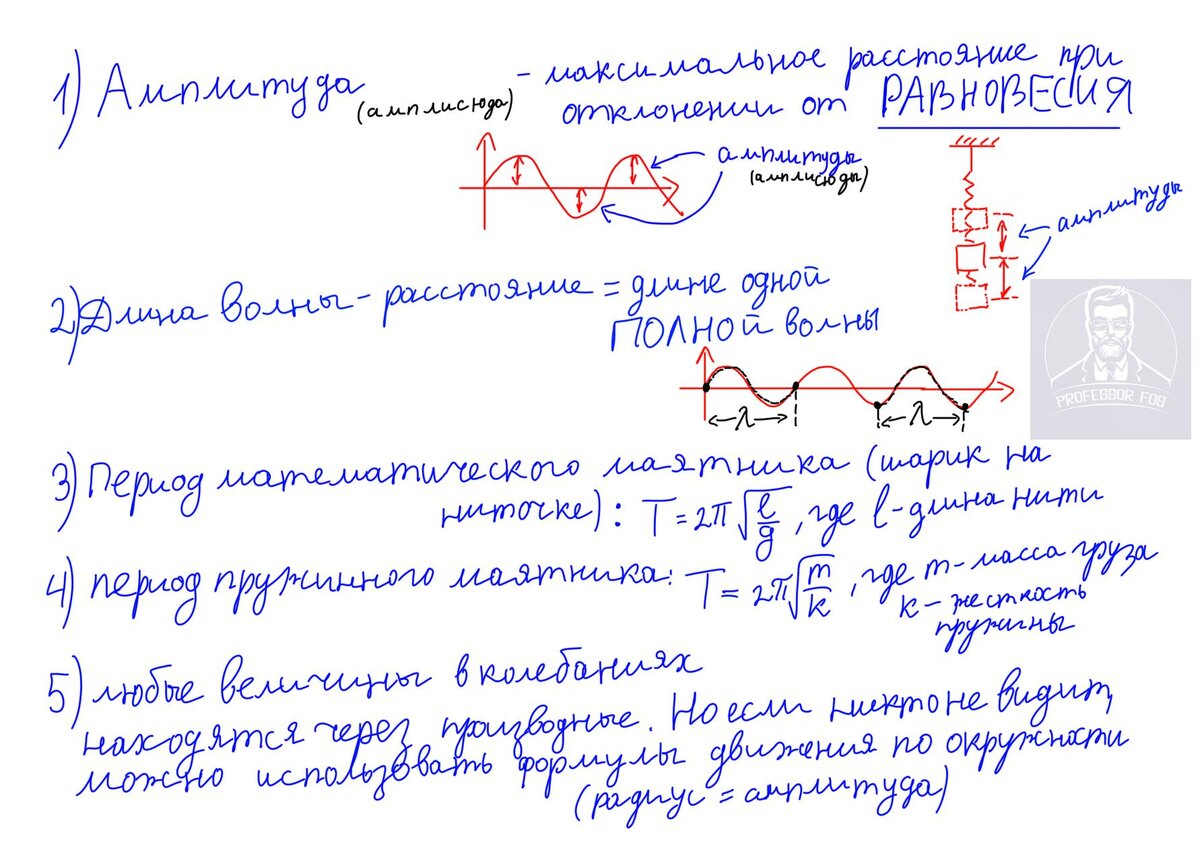 1) Амплитуда - максимальное расстояние при
(амплисюда) отклонении от РАВНОВЕСИЯ
амплитуды
(амплисюды)
амплитуды
2) Длина волны - расстояние = длине одной
ПОЛНОЙ волны
PROFESSOR FOG
λ λ
3) Период математического маятника (шарик на
ниточке): T = 2π√(l/g), где l - длина нити
4) период пружинного маятника: T = 2π√(m/k), где m - масса груза
k - жесткость
пружины
5) любые величины в колебаниях
находятся через производные. Но если никто не видит,
можно использовать формулы движения по окружности
(радиус = амплитуда)